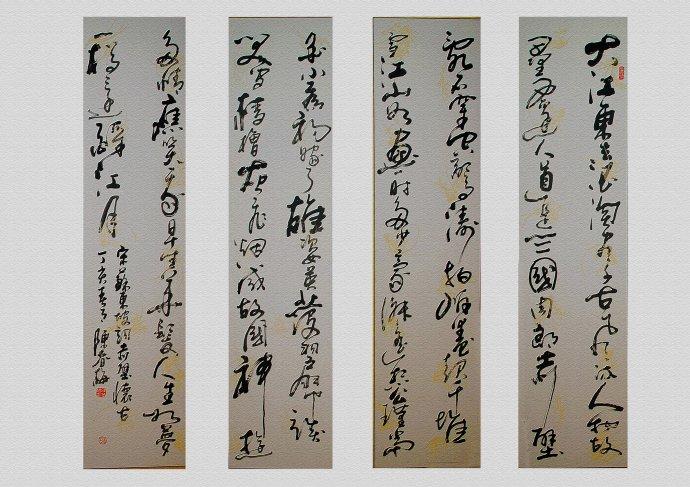 大江東去浪淘盡千古風流人物故
壘西邊人道是三國周郎赤壁
亂石穿空驚濤拍岸卷起千堆
雪江山如畫一時多少豪傑遥想公瑾當
年小喬初嫁了雄姿英發羽扇綸巾談
笑間檣櫓灰飛烟滅故國神游
多情應笑我早生華髮人生如夢
一樽還酹江月
宋蘇東坡詞赤壁懷古
丁亥春月陳春